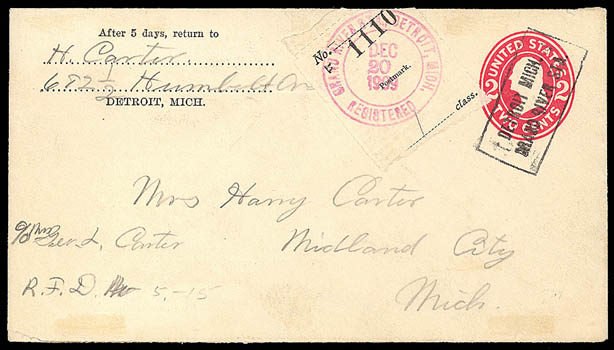 After 5 days, return to
H. Carter
682½ Humboldt Av
DETROIT, MICH.
No. 1110
DETROIT, MICH.
DEC
20
1909
REGISTERED
Postmark.
class.
UNITED STATES
2 2
TWO CENTS
DETROIT MICH.
GRAND RIVER STA
Mrs Harry Carter
c/o Mrs Geo. L. Carter
Midland City
R.F.D. 5,-15
Mich.